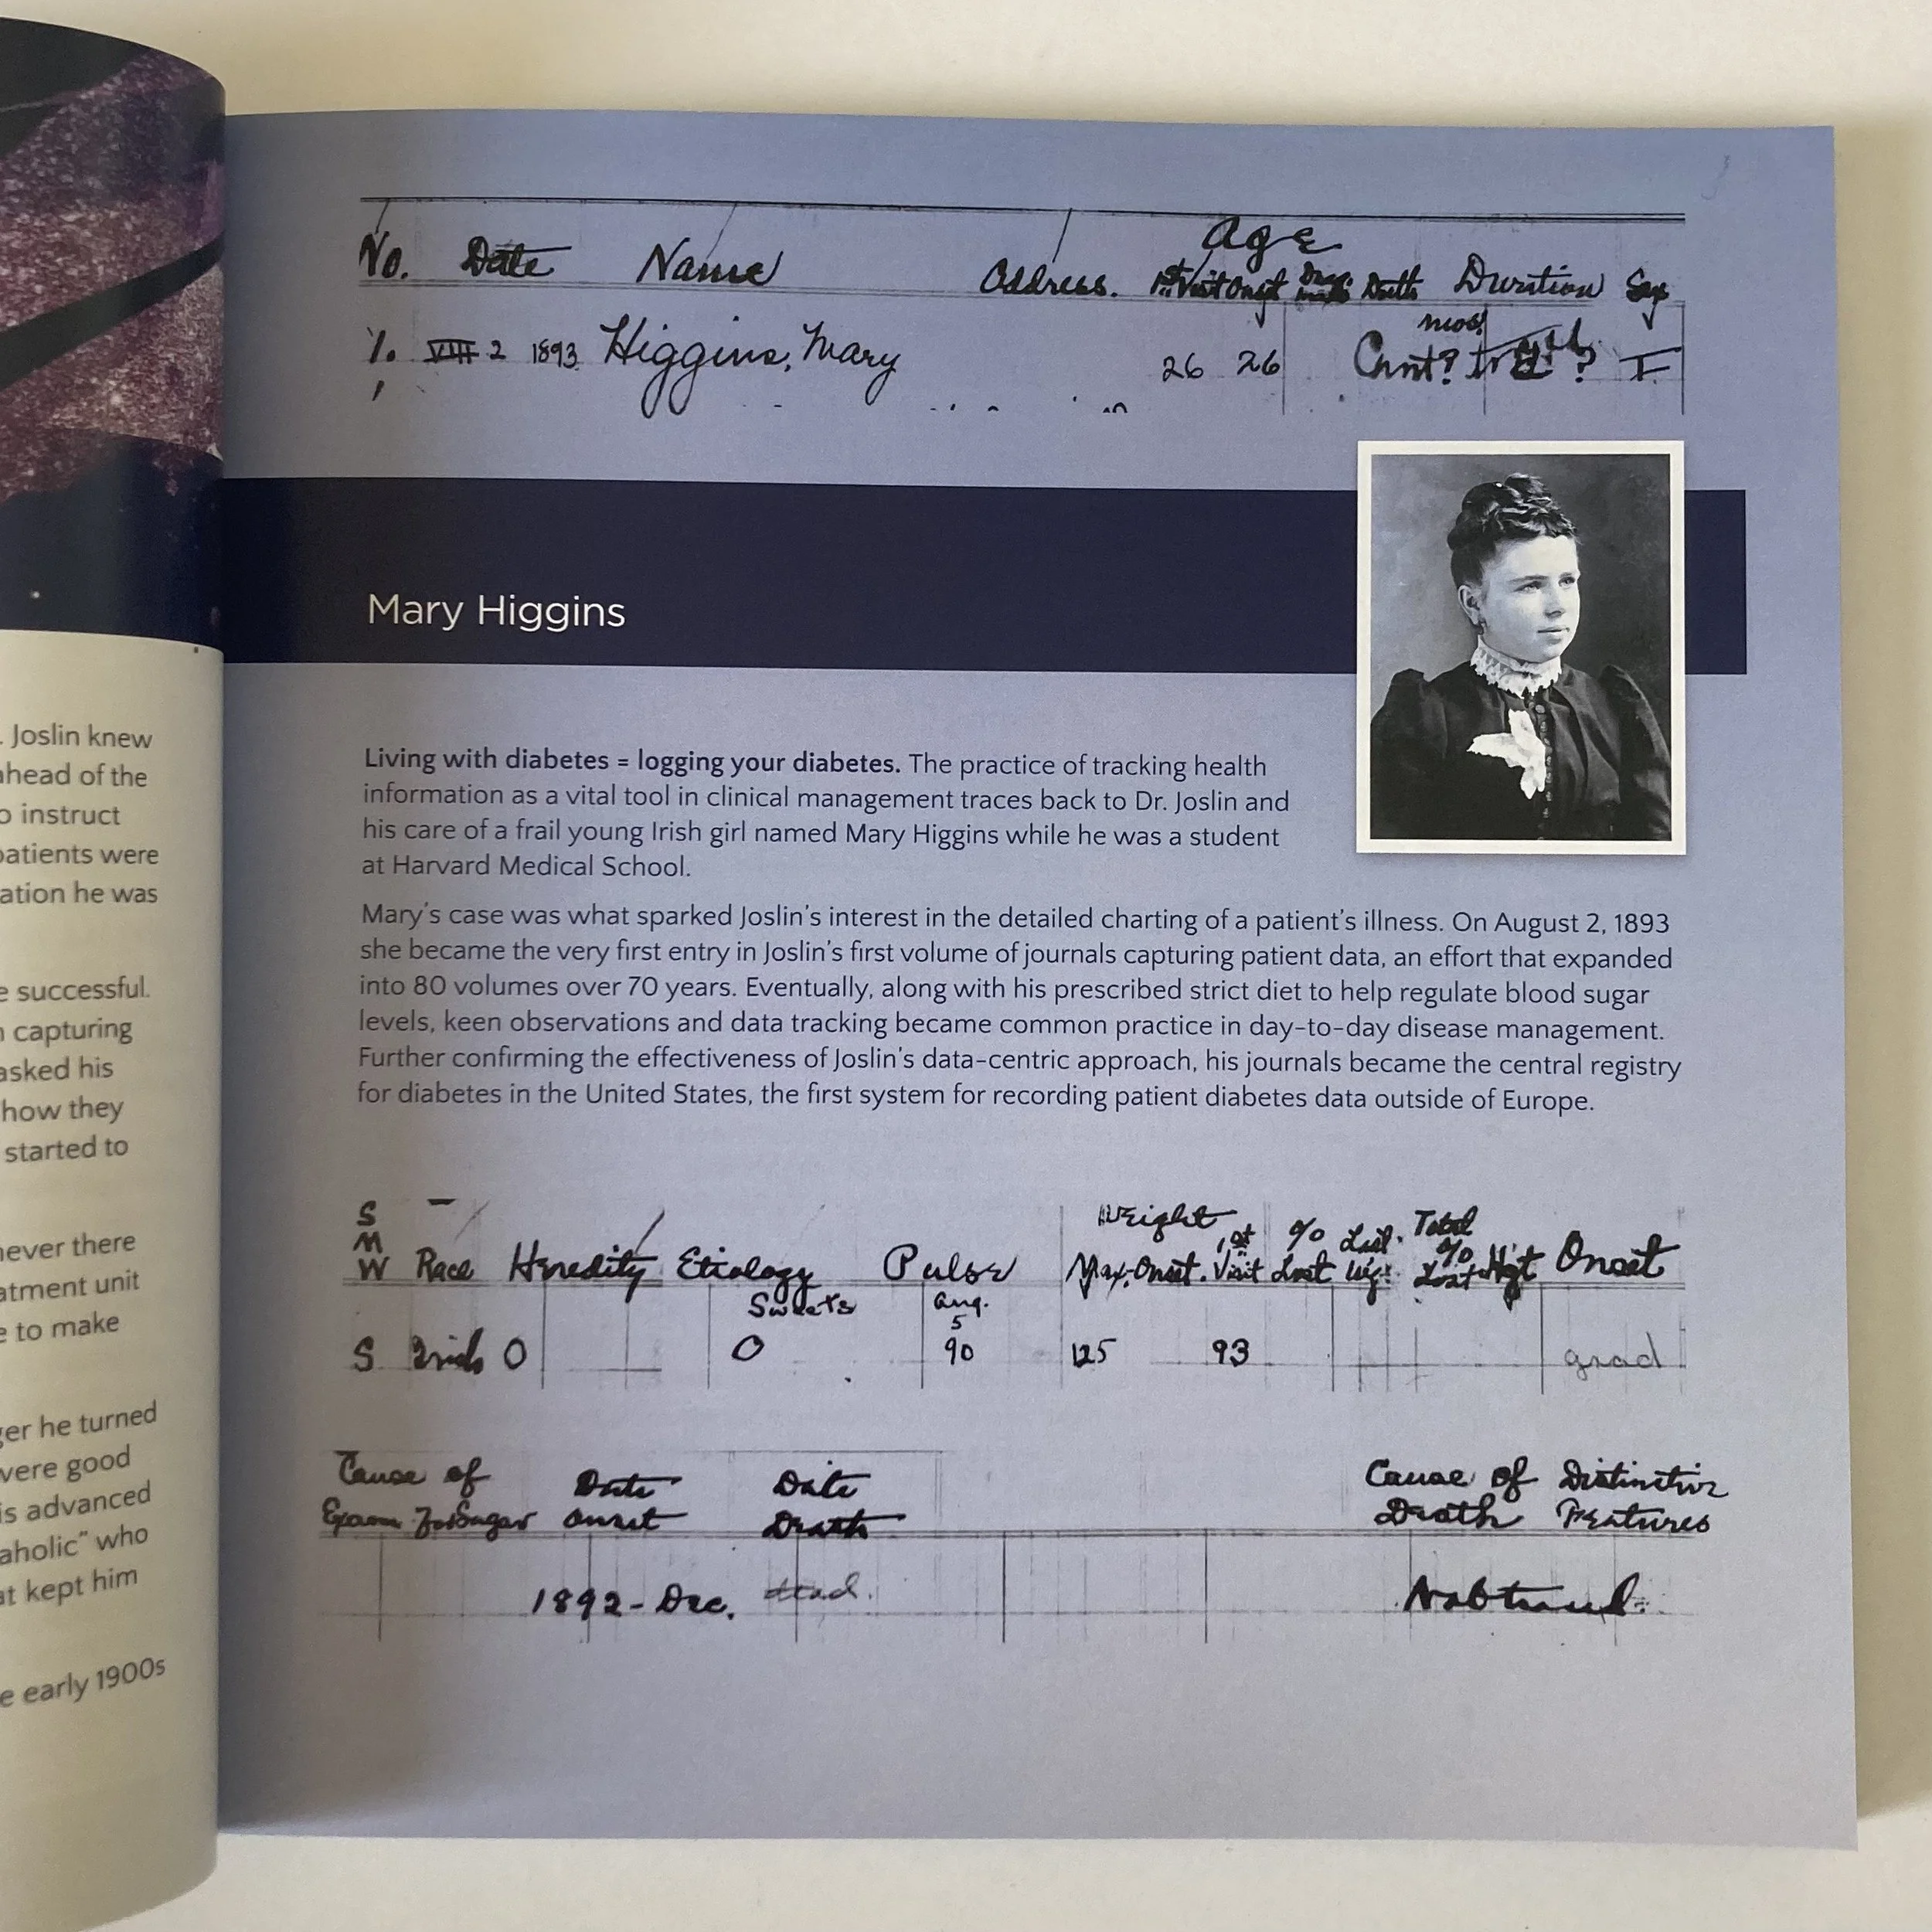 . Joslin knew
ahead of the
o instruct
patients were
ation he was
e successful.
n capturing
asked his
how they
started to
never there
atment unit
e to make
ger he turned
were good
is advanced
aholic" who
at kept him
e early 1900s
Age
No. Date Name Address. 1st Visit Onset Death Duration Sex
1. VIII 2 1893 Higgins, Mary 26 26 mos.
Mary Higgins
Living with diabetes = logging your diabetes. The practice of tracking health
information as a vital tool in clinical management traces back to Dr. Joslin and
his care of a frail young Irish girl named Mary Higgins while he was a student
at Harvard Medical School.
Mary's case was what sparked Joslin's interest in the detailed charting of a patient's illness. On August 2, 1893
she became the very first entry in Joslin's first volume of journals capturing patient data, an effort that expanded
into 80 volumes over 70 years. Eventually, along with his prescribed strict diet to help regulate blood sugar
levels, keen observations and data tracking became common practice in day-to-day disease management.
Further confirming the effectiveness of Joslin's data-centric approach, his journals became the central registry
for diabetes in the United States, the first system for recording patient diabetes data outside of Europe.
S
M Weight Total
W Race Heredity Etiology Pulse Max. Onset. 1st Visit % Lost Last Wgt. % Lost Hgt Onset
Sweets Aug.
5
S Irish O O 90 125 93 grad
Cause of Date Date Cause of Distinctive
Exam For Sugar Onset Death Death Features
1892 - Dec.